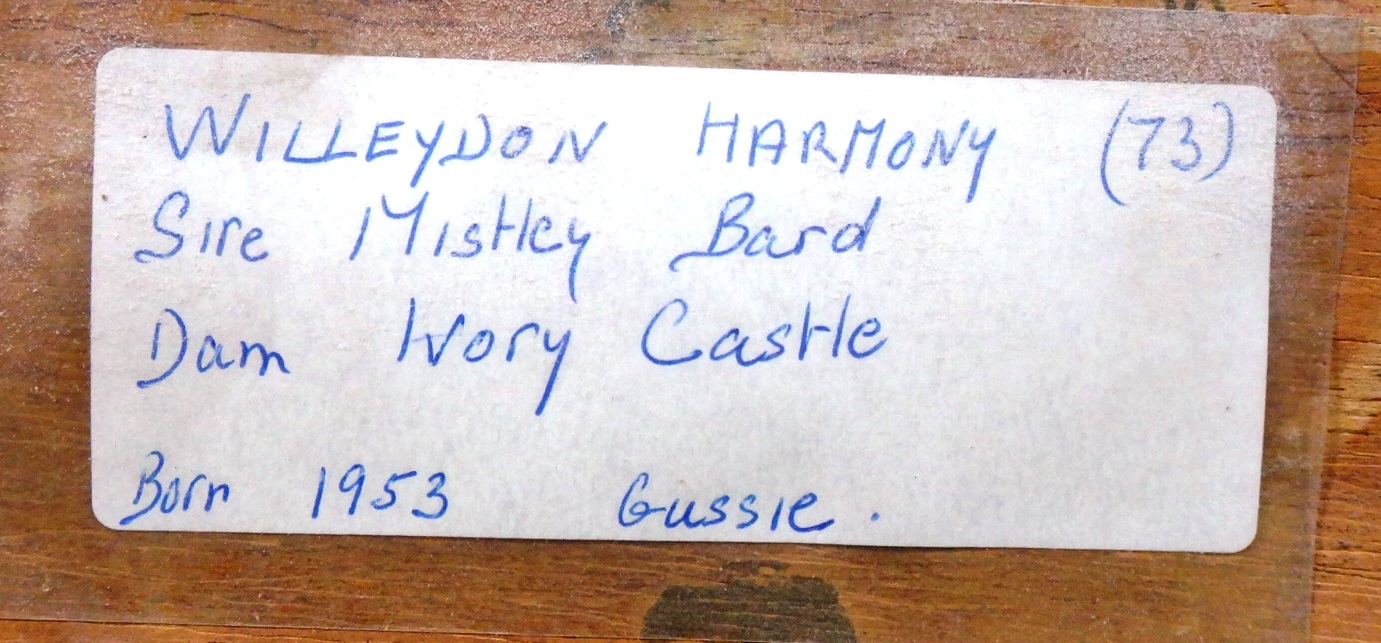 WILLEYDON HARMONY (73)
Sire Mistley Bard
Dam Ivory Castle
Born 1953 Gussie.